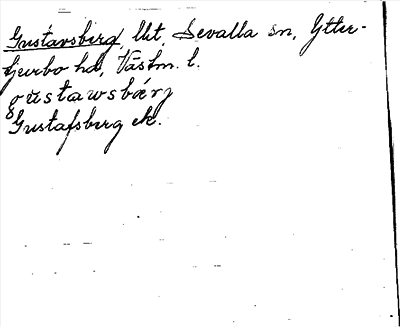 Gustavsberg, lht, Sevalla sn, Ytter-
tjurbo hd, Västm. l.
gustawsbärj
Gustafsberg ek.